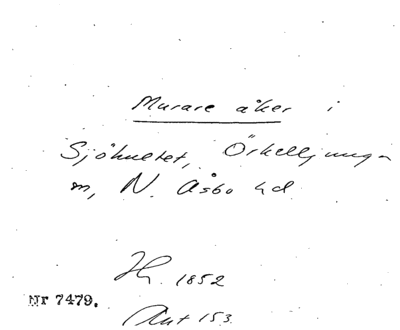 Murare åker i
Sjöhultet, Örkelljunga
sn, N. Åsbo hd
Hy. 1852
Nr 7479.
Ant 153.